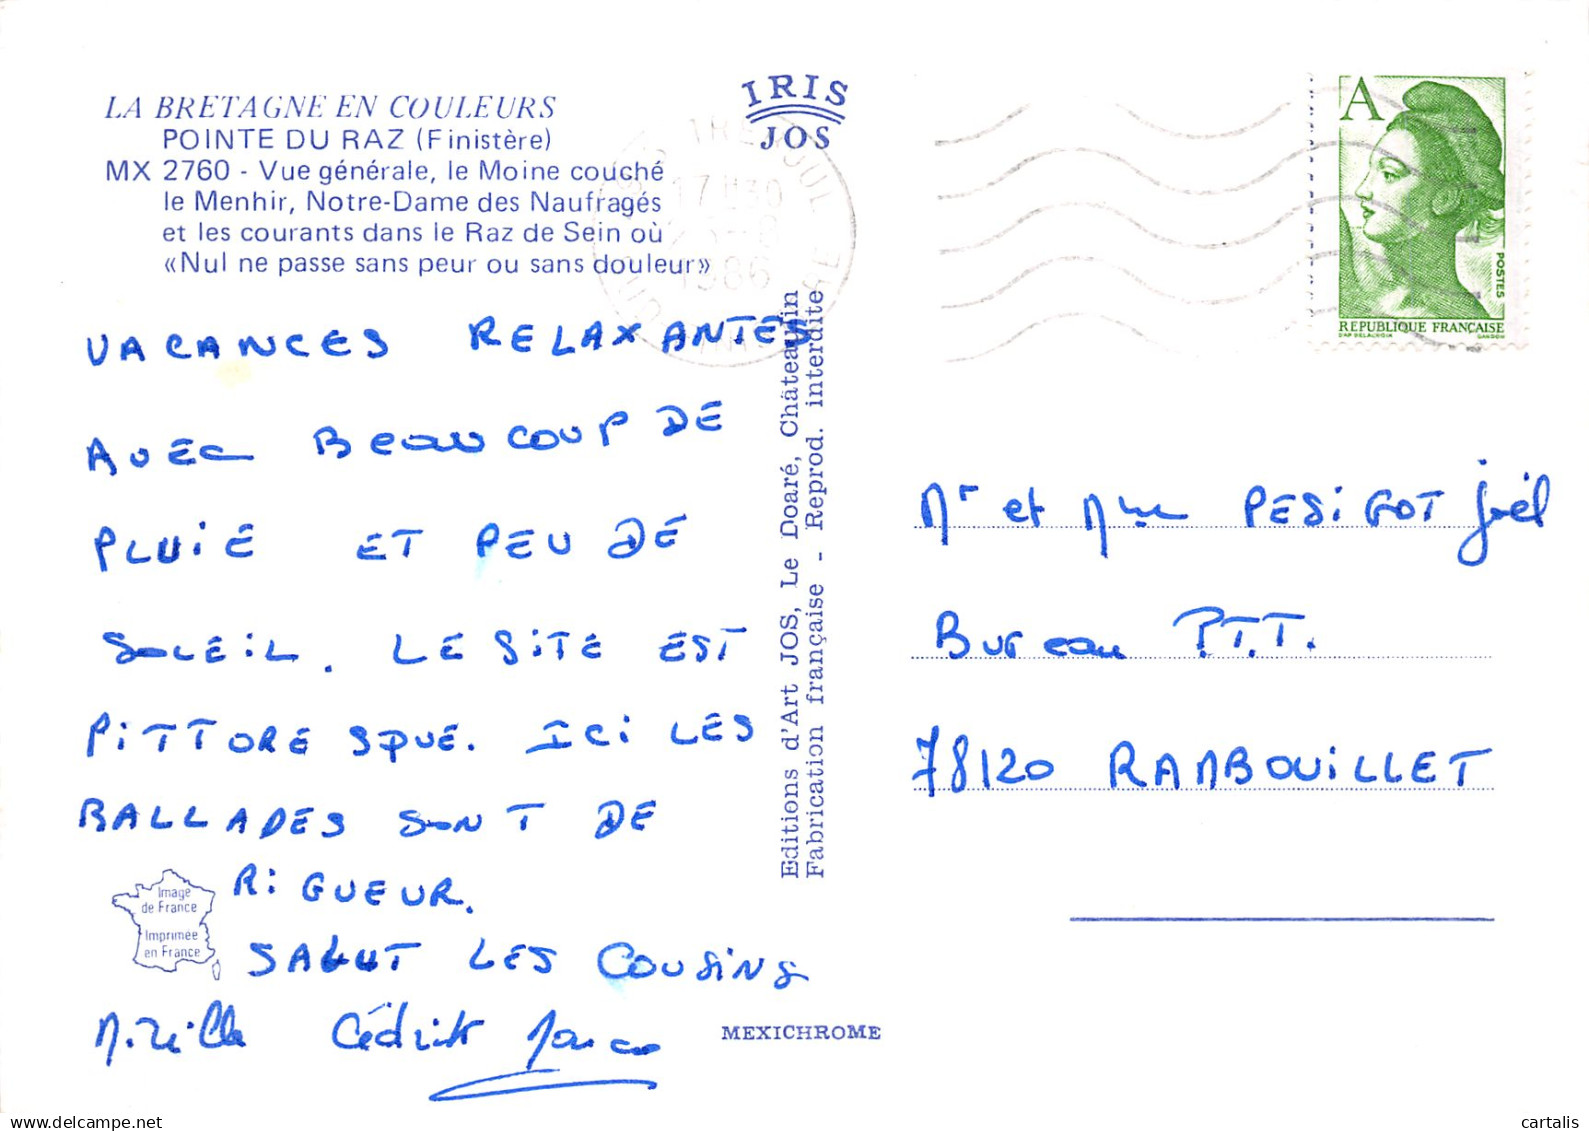 LA BRETAGNE EN COULEURS
POINTE DU RAZ (Finistère)
MX 2760 - Vue générale, le Moine couché
le Menhir, Notre-Dame des Naufragés
et les courants dans le Raz de Sein où
«Nul ne passe sans peur ou sans douleur»
IRIS
JOS
17H30
1986
A
POSTES
REPUBLIQUE FRANÇAISE
D'AP DELACROIX GANDON
VACANCES RELAXANTES
AVEC BEAUCOUP DE
PLUIE ET PEU DE
SOLEIL. LE SITE EST
PITTORESQUE. ICI LES
BALLADES SONT DE
RIGUEUR.
SALUT LES COUSINS
Mireille Cédrik
Editions d'Art JOS, Le Doaré, Châteaulin
Fabrication française - Reprod. interdite
Mr et Mme PESIGOT Joël
Bureau P.T.T.
78120 RAMBOUILLET
Image
de France
Imprimée
en France
MEXICHROME
delcampe.net
cartalis